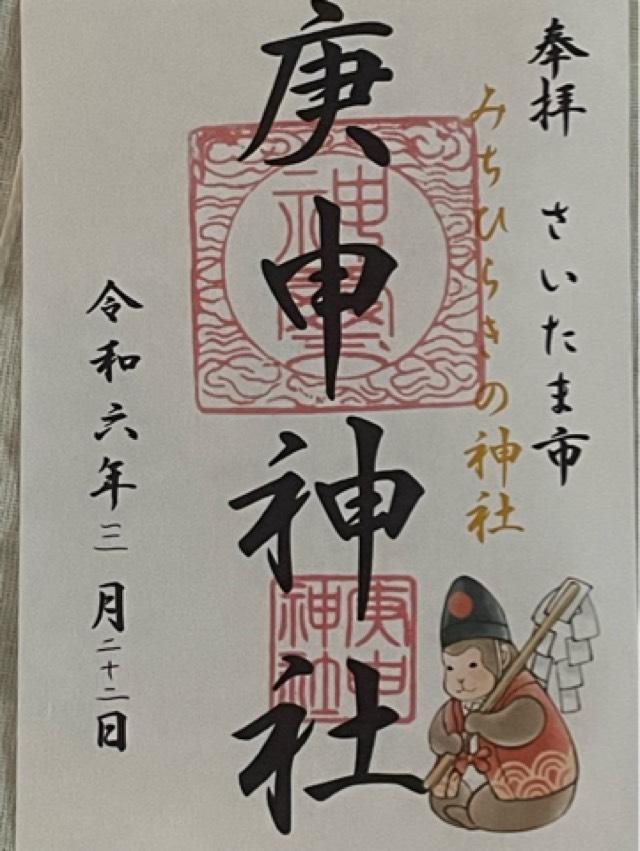 奉拝　さいたま市
みちひらきの神社
庚申神社
庚申
神社
令和六年三月二十二日